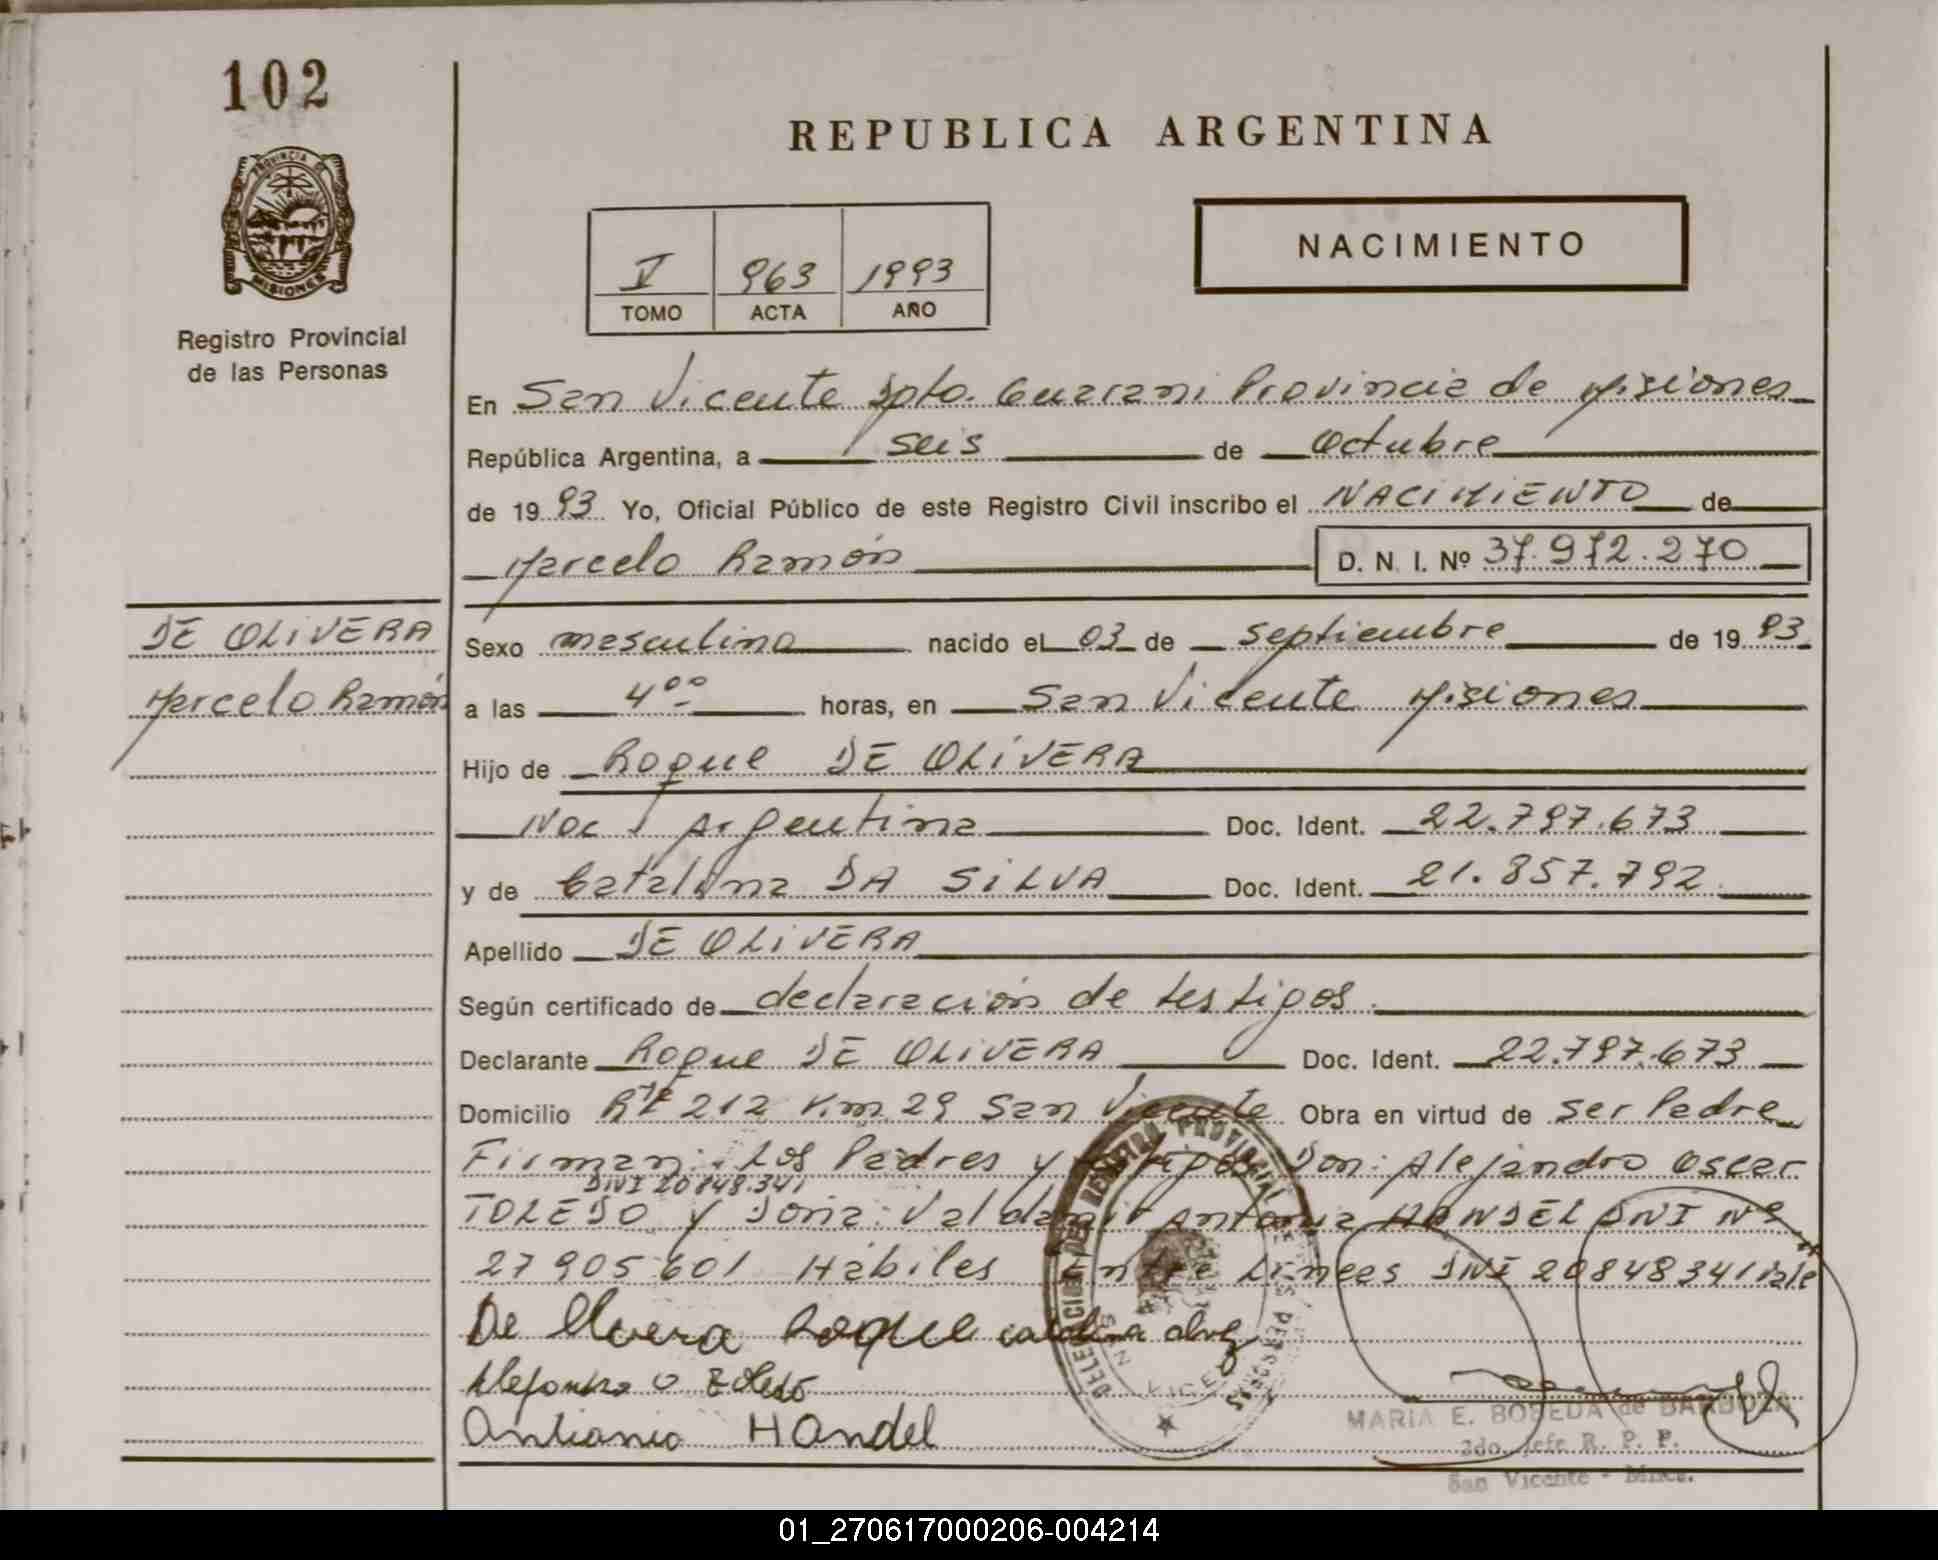 102
PROVINCIA DE
MISIONES
Registro Provincial
de las Personas
REPUBLICA ARGENTINA
V 963 1993
TOMO ACTA AÑO
NACIMIENTO
En San Vicente Dpto. Guarani Provincia de Misiones
República Argentina, a seis de Octubre
de 1993 Yo, Oficial Público de este Registro Civil inscribo el NACIMIENTO de
Marcelo Ramón D. N. I. Nº 37.972.270
DE OLIVERA
Marcelo Ramón
Sexo masculino nacido el 03 de Septiembre de 1993
a las 4⁰⁰ horas, en San Vicente Misiones
Hijo de Roque DE OLIVERA
Nac Argentina Doc. Ident. 22.797.673
y de Catalina DA SILVA Doc. Ident. 21.857.792
Apellido DE OLIVERA
Según certificado de declaración de testigos.
Declarante Roque DE OLIVERA Doc. Ident. 22.797.673
Domicilio Rte 212 Km 29 San Vicente Obra en virtud de ser Padre
Firman: Los Padres y testigos Don: Alejandro Oscar
DNI 20848.341
TOLEDO y Doña: Antonia HANDEL DNI Nº
27905601 Hábiles Entre Lineas DNI 20848341 Vale
De Olivera Roque catalina
Alejandro O Toledo
Antonia Handel
DELEGACION DEL REGISTRO PROVINCIAL DE LAS PERSONAS
MARIA E. BOBEDA de BARBOZA
2do. Jefe R. P. P.
San Vicente - Mnes.
01_270617000206-004214